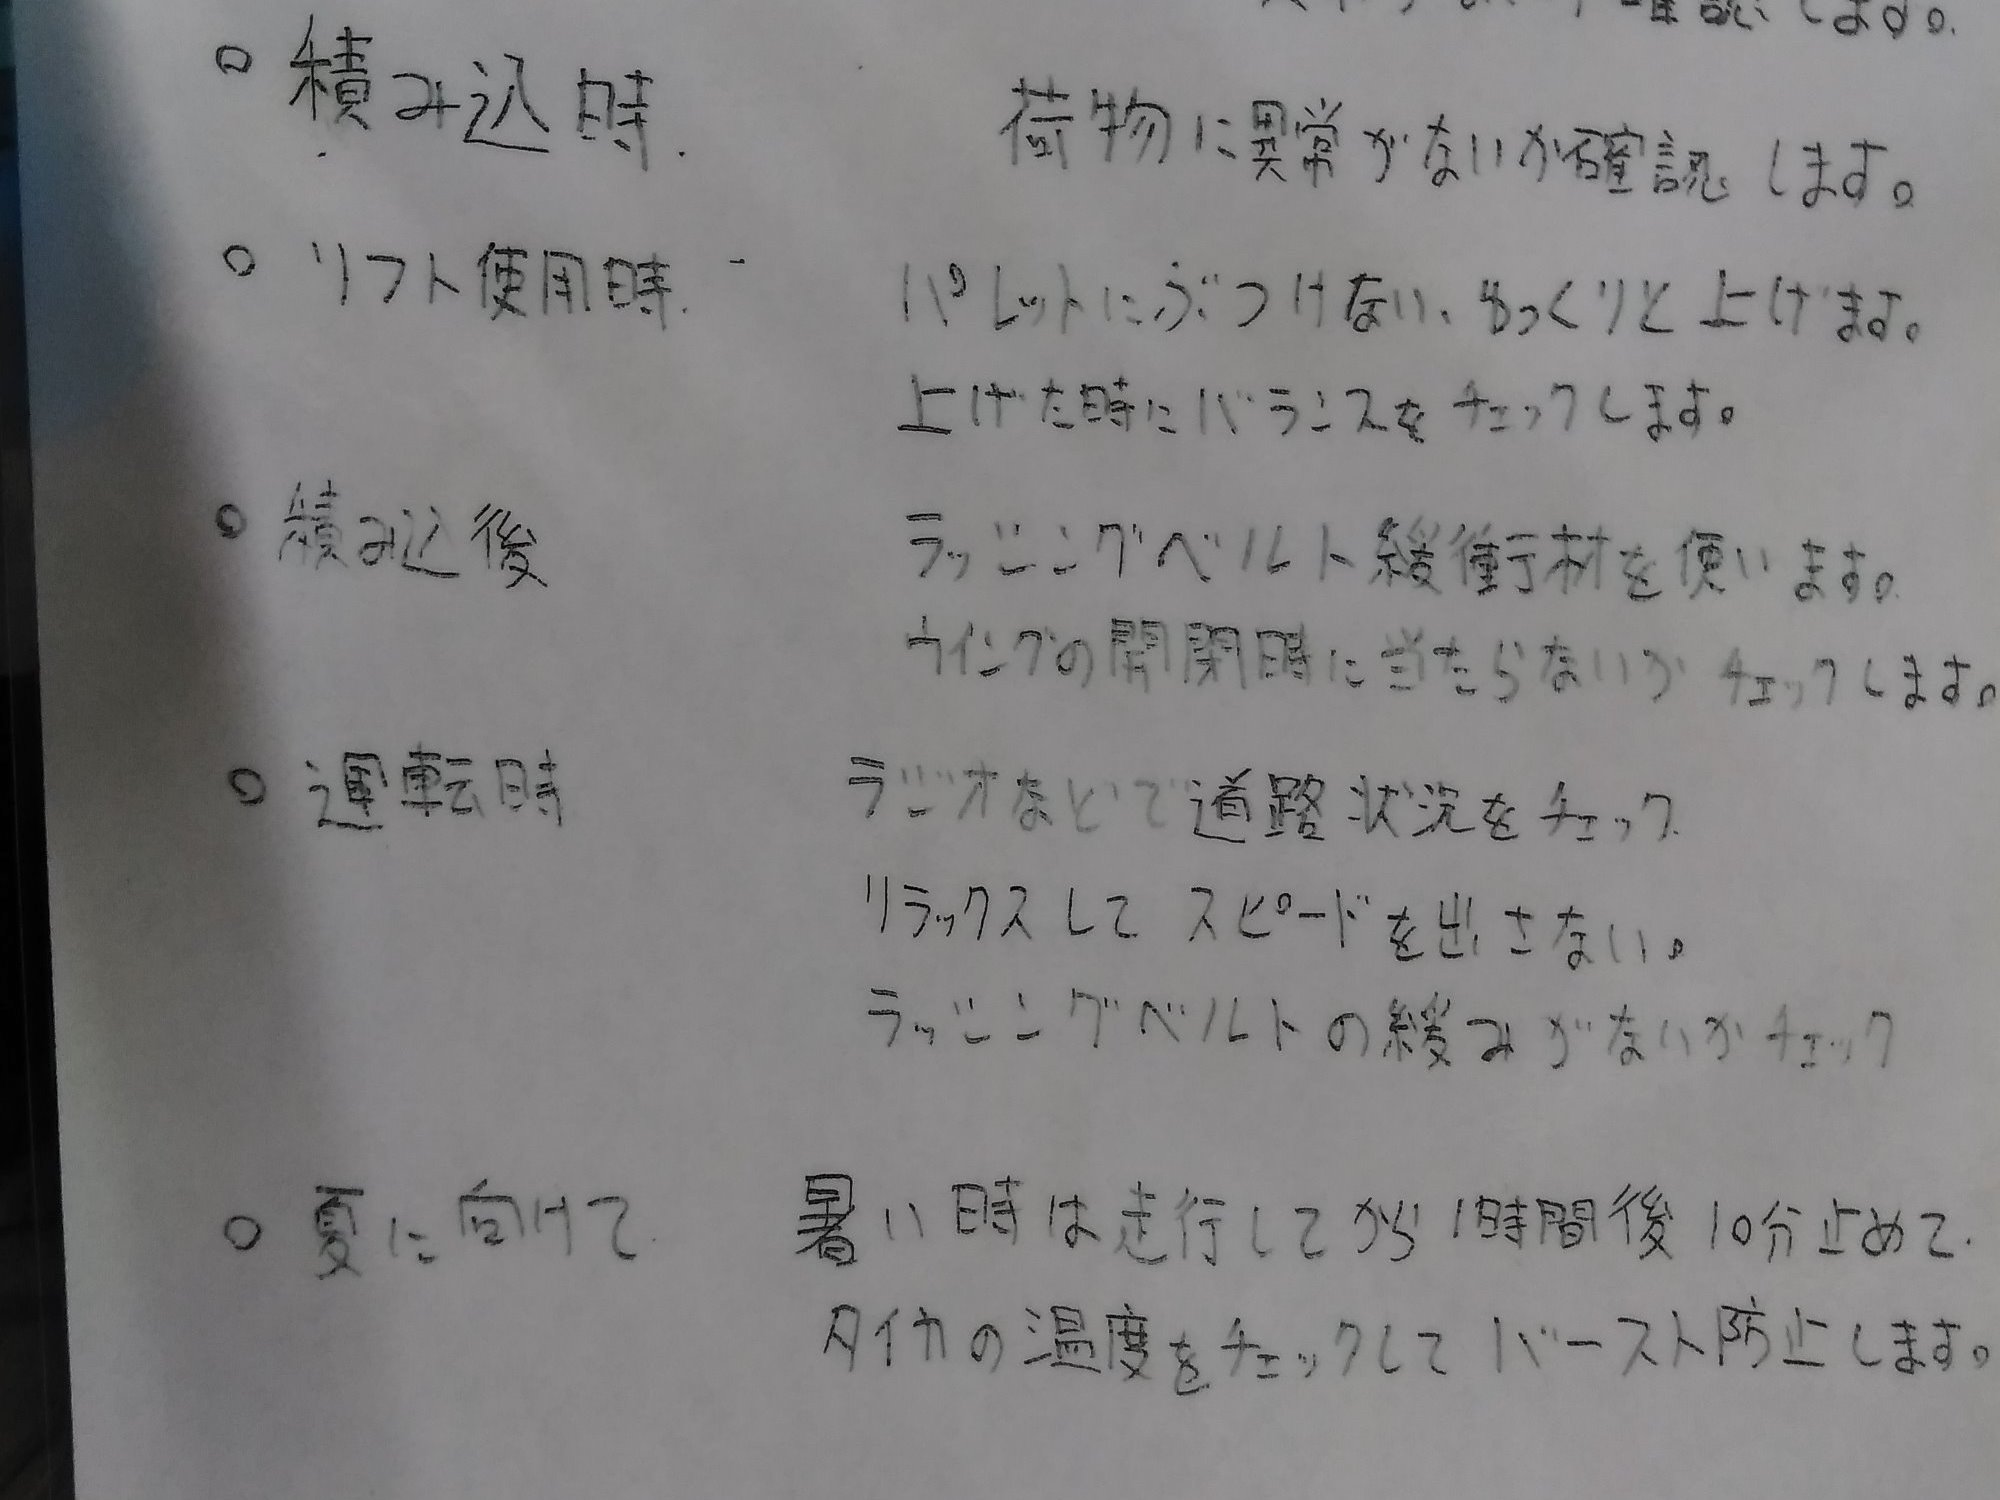 確認します。
○ 積み込時. 荷物に異常がないか確認します。
○ リフト使用時. パレットにぶつけない、ゆっくりと上げます。
上げた時にバランスをチェックします。
○ 積み込後 ラッシングベルト緩衝材を使います。
ウイングの開閉時に当たらないかチェックします。
○ 運転時 ラジオなどで道路状況をチェック
リラックスしてスピードを出さない。
ラッシングベルトの緩みがないかチェック
○ 夏に向けて 暑い時は走行してから1時間後10分止めて
タイヤの温度をチェックしてバースト防止します。